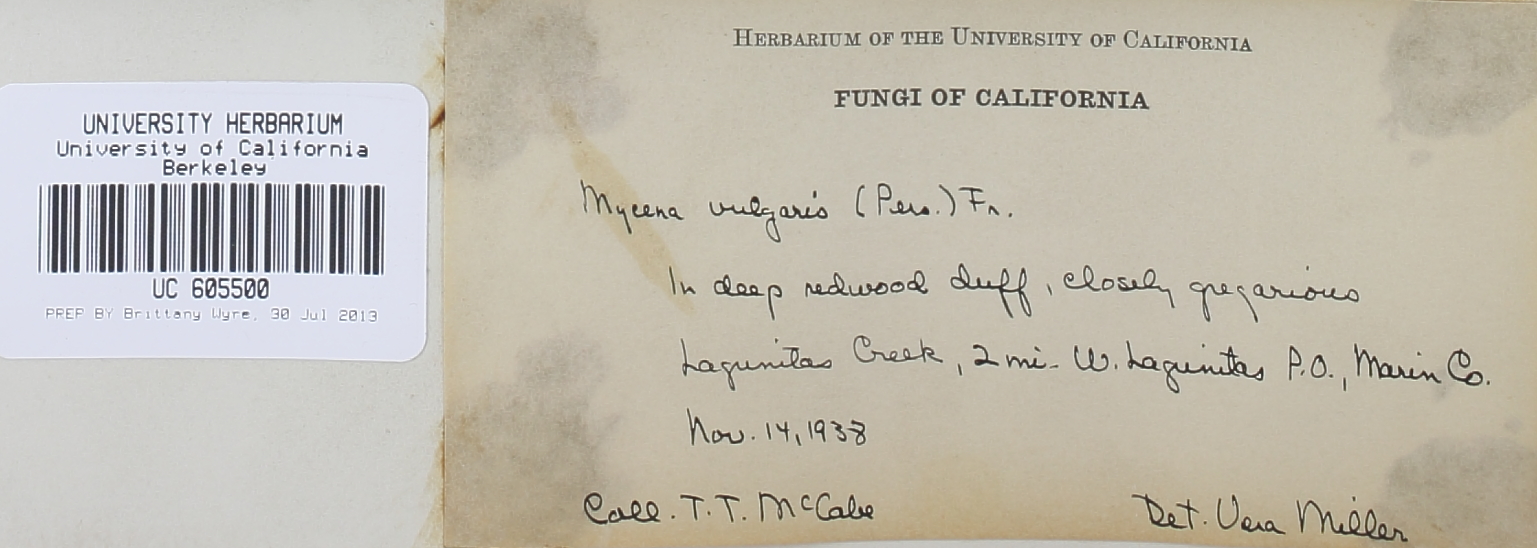 UNIVERSITY HERBARIUM
University of California
Berkeley
UC 605500
PREP BY Brittany Wyre, 30 Jul 2013
HERBARIUM OF THE UNIVERSITY OF CALIFORNIA
FUNGI OF CALIFORNIA
Mycena vulgaris (Pers.) Fr.
In deep redwood duff, closely gregarious
Lagunitas Creek, 2 mi. W. Lagunitas P.O., Marin Co.
Nov. 14, 1938
Coll. T. T. McCabe
Det. Vera Miller